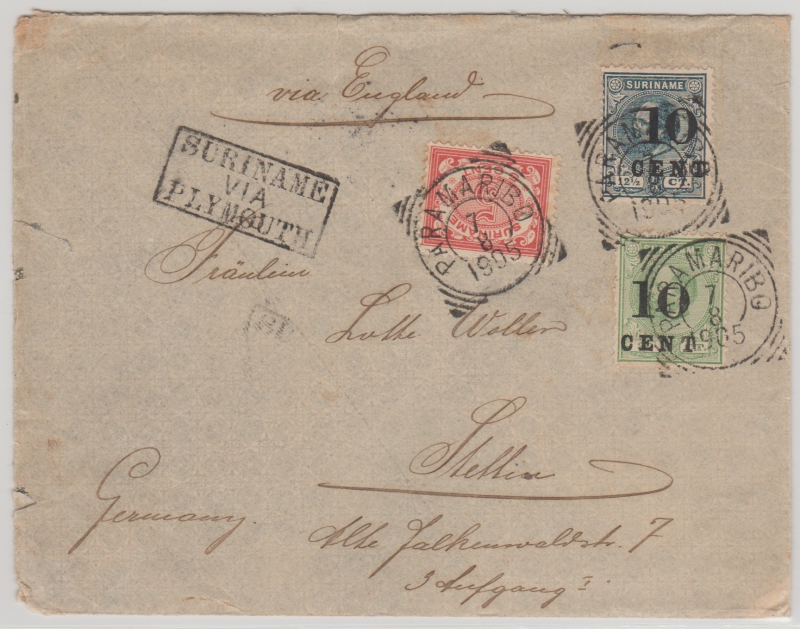 via England
SURINAME
VIA
PLYMOUTH
SURINAME
10
CENT
12½ CT.
PARAMARIBO
1905
5
SURINAME
PARAMARIBO
7
8
1905
10
CENT
PARAMARIBO
7
8
1905
Fräulein
Lotte Woller
Stettin
Germany.
Alte Falkenwaldstr. 7
3 Aufgang I